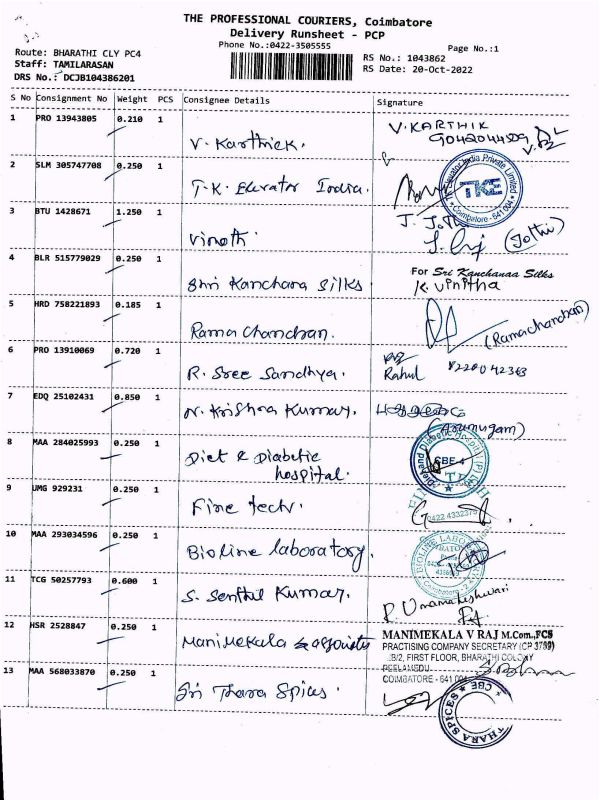 THE PROFESSIONAL COURIERS, Coimbatore
Delivery Runsheet - PCP
Phone No.:0422-3505555
Page No.:1
Route: BHARATHI CLY PC4
Staff: TAMILARASAN
DRS No.: DCJB104386201
RS No.: 1043862
RS Date: 20-Oct-2022
S No Consignment No Weight PCS Consignee Details Signature
1 PRO 13943805 0.210 1
V. Karthick.
V. KARTHIK
2 SLM 305747708 0.250 1
T.K. Elevator India.
Elevator India Private Limited
TKE
Coimbatore - 641 004
3 BTU 1428671 1.250 1
Vinoth.
(Jothi)
4 BLR 515779029 0.250 1
Shri Kanchana Silks
For Sri Kanchanaa Silks
K. Vinitha
5 HRD 758221893 0.185 1
Rama Chandran.
(Ramachandran)
6 PRO 13910069 0.720 1
R. Sree Sandhya.
Rahul 8220042363
7 EDQ 25102431 0.850 1
N. Krishna Kumar.
(Arumugam)
8 MAA 284025993 0.250 1
Diet & Diabetic
hospital.
CBE-4
9 UMG 929231 0.250 1
Fine tech.
10 MAA 293034596 0.250 1
Bioline laboratory.
BIOLINE LABORATORY
11 TCG 50257793 0.600 1
S. Senthil Kumar.
P. Umamaheshwari
12 HSR 2528847 0.250 1
Manimekala & associates
MANIMEKALA V RAJ M.Com.,FCS
PRACTISING COMPANY SECRETARY (CP 3769)
FIRST FLOOR, BHARATHI COLONY
PEELAMEDU
COIMBATORE - 641 004
13 MAA 568033870 0.250 1
Sri Thara Spices.
THARA SPICES
CBE